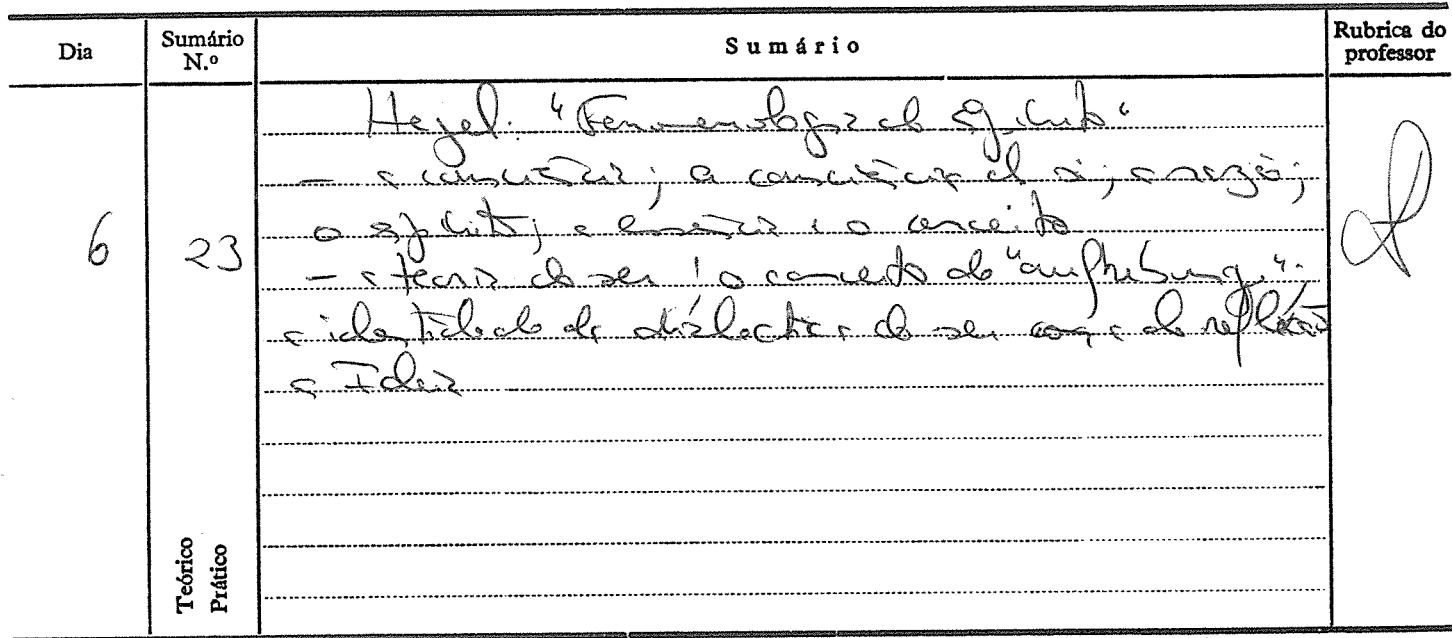 Dia
Sumário N.º
Sumário
Rubrica do professor
6
23
Hegel: "Fenomenologia do Espírito"
– a consciência; a consciência de si; a razão;
o espírito; a essência e o conceito
– a teoria do ser: o conceito de "aufhebung":
a identidade da dialectica do ser com a da reflexão
a Ideia
Teórico
Prático